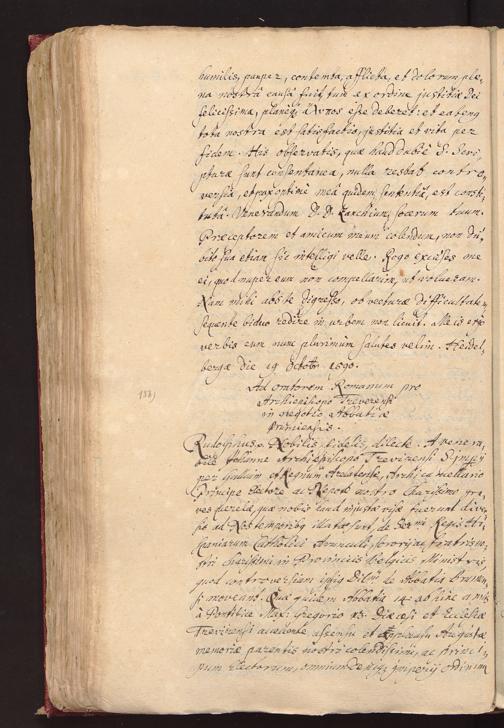 humilis, pauper, contempta, afflicta, et dolorum ple,
na nostrâ causâ fuit tum ex ordine justitiæ Dei
felicissima, planeq esse deberet: et eatenq
tota nostra est satisfactio, justitia et vita per
fidem. His observatis, quæ haud dubiè S. Scri,
pturæ sunt consentanea, nulla restabit contro,
versia, et pax optimè meâ quidem sententiâ, est consti,
tuta. Venerandum D. D. Zanchium, socerum tuum.
Præceptorem et amicum meum colendum, non du,
bito sua etiam sic intelligi velle. Rogo excuses me
ei, quod nuper eum non compellarim, ut volueram.
Nam mihi abs te digresso, ob vecturæ difficultatem
sequente biduo redire in urbem non licuit. Meis ergo
verbis eum nunc plurimum salutes velim. Heidel,
bergæ die 19 Octobr. 1590.
Ad oratorem Romanum pro
Archiepiscopo Treverensi
in negotio Abbatiæ
Prumiensis.
Rudolphus Nobilis fidelis dilecte. A venera,
bile Johanne Archiepiscopo Trevirensi S. Impii
per Galliam et Regnum Arelatense, Archicancellario
Principe Electore ac Nepote nostro charissimo gra,
ves querelæ, quæ nobis haud injustæ visæ fuerunt diver,
sis ad Nos temporibq illatæ sunt, de Sermi Regis His,
paniarum Catholici Avunculi, Sororii, ac fratris no,
stri charissimi in Provinciis Belgicis Ministris,
quod controversiam ipsiq Dilni de Abbatia Prumien,
si moveant. Quæ quidem Abbatia 14 ab hinc annis
à Pontifice Maxi Gregorio 13. Diœcesi et Ecclesiæ
Trevirensi accedente assensu et Augustæ
memoriæ parentis nostri colendissimi, ac Princi,
pum Electorum, omnium deniq Imperii Ordinum